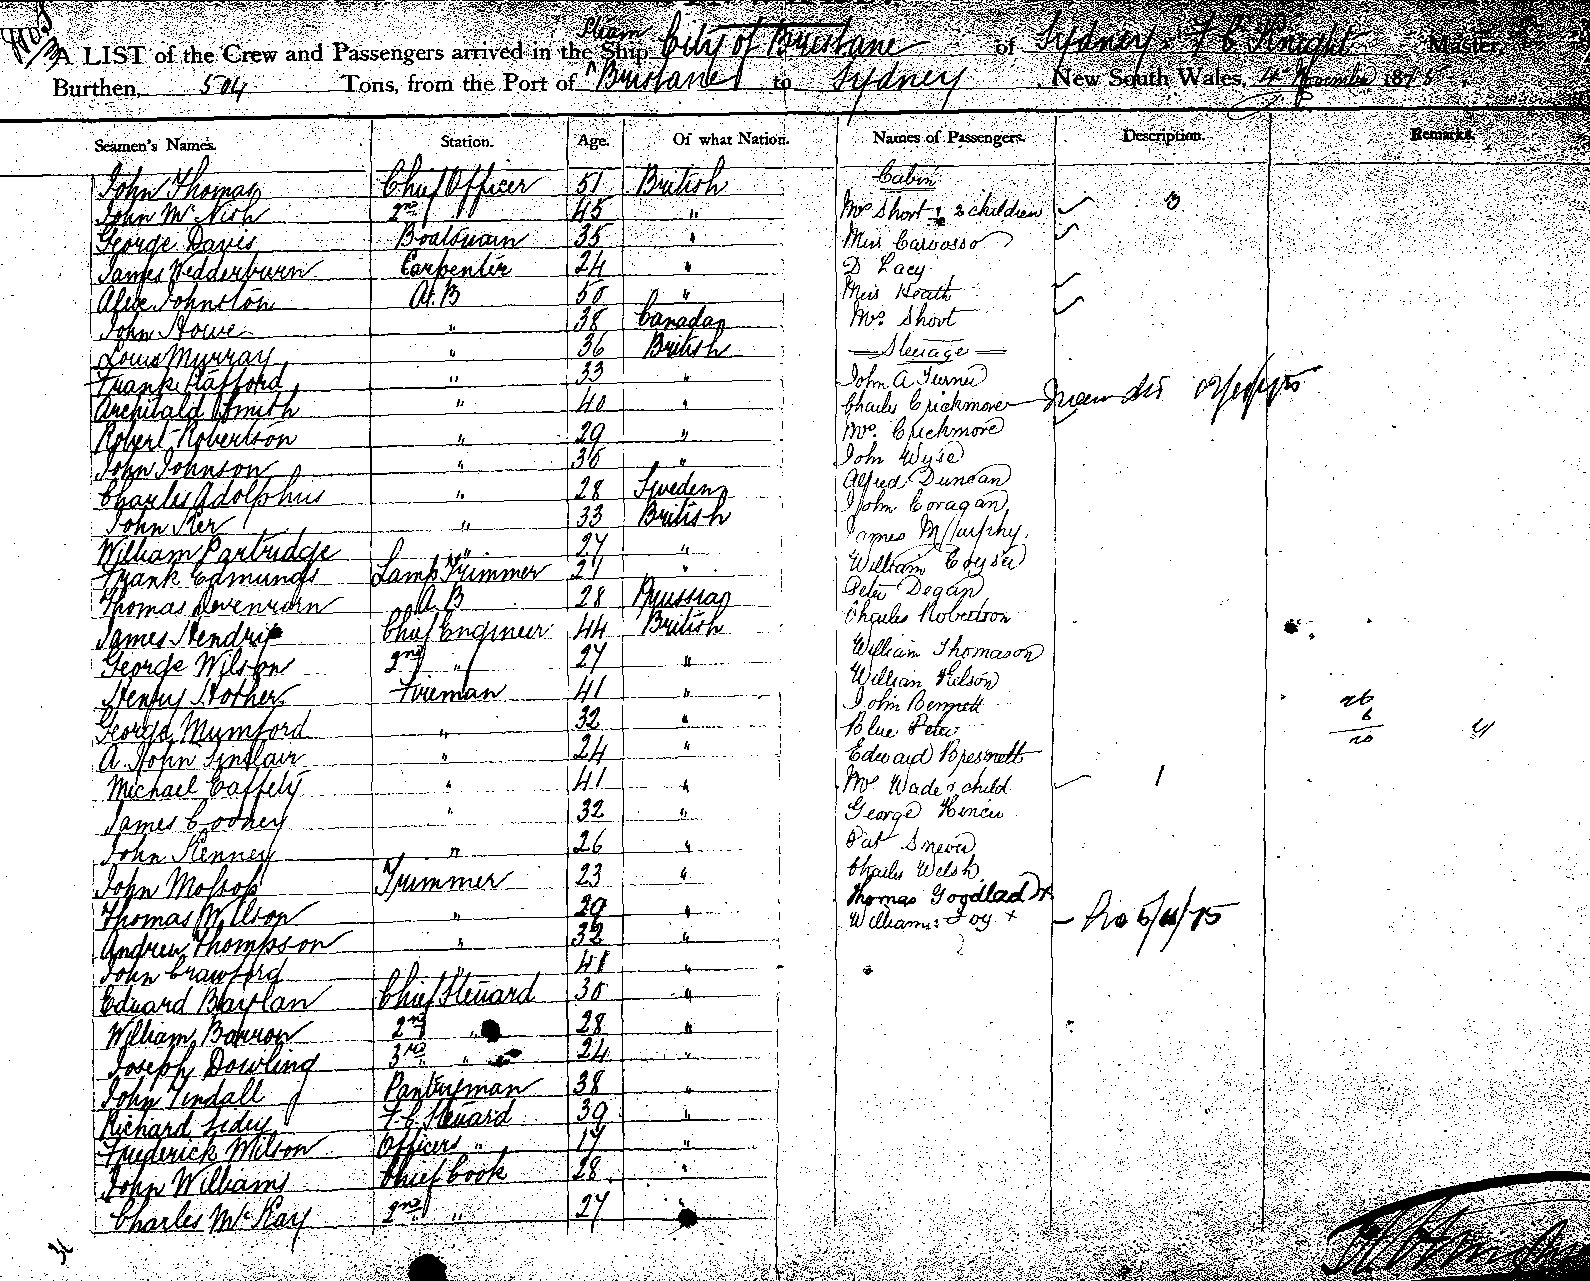 A LIST of the Crew and Passengers arrived in the Steam Ship City of Brisbane of Sydney F C Knight Master,
Burthen, 504 Tons, from the Port of Brisbane to Sydney New South Wales, 4 November 1875
Seamen's Names. Station. Age. Of what Nation. Names of Passengers. Description. Remarks.
John Thomas Chief Officer 51 British Cabin
John McNish 2nd " 45 " Mrs Short & 2 children 3
George Davis Boatswain 35 " Miss Carvosso
James Wedderburn Carpenter 24 " D Lacy
Alex Johnston A.B 50 " Miss Heath
John Howe " 38 Canadan Mrs Short
Louis Murray " 36 British Steerage
Frank Stafford " 33 " John A Turner
Archibald Smith " 40 " Charles Crickmore
Robert Robertson " 29 " Mrs. Crickmore
John Johnson " 30 " John Wyse
Charles Adolphus " 28 Sweden Alfred Duncan
John Ker " 33 British John Coragan
William Partridge " 27 " James Murphy
Frank Edmunds Lamp Trimmer 21 " William
Thomas A B 28 Prussian Peter Degan
James Hendrie Chief Engineer 44 British Charles Robertson
George Wilson 2nd " 27 " William Thomason
Henry Hother Fireman 41 " William Nelson
George Mumford " 32 " John Bennett
A John Sinclair " 24 " Blue Peter
Michael Caffety " 41 " Edward
James Cooney " 32 " Mrs Wade & child 1
John Kenney " 26 " George
John Mossop Trimmer 23 " Pat
Thomas Wilson " 29 " Charles Welsh
Andrew Thompson " 32 " Thomas Goodlad
John Crawford " 41 " William Foy x
Edward Baylan Chief Steward 30 "
William Barron 2nd " 28 "
Joseph Dowling 3rd " 24 "
John Tindall Pantryman 38 "
Richard Lidey F.C. Steward 39 "
Frederick Wilson Officers " 17 "
John Williams Chief Cook 28 "
Charles McKay 2nd " 27 "